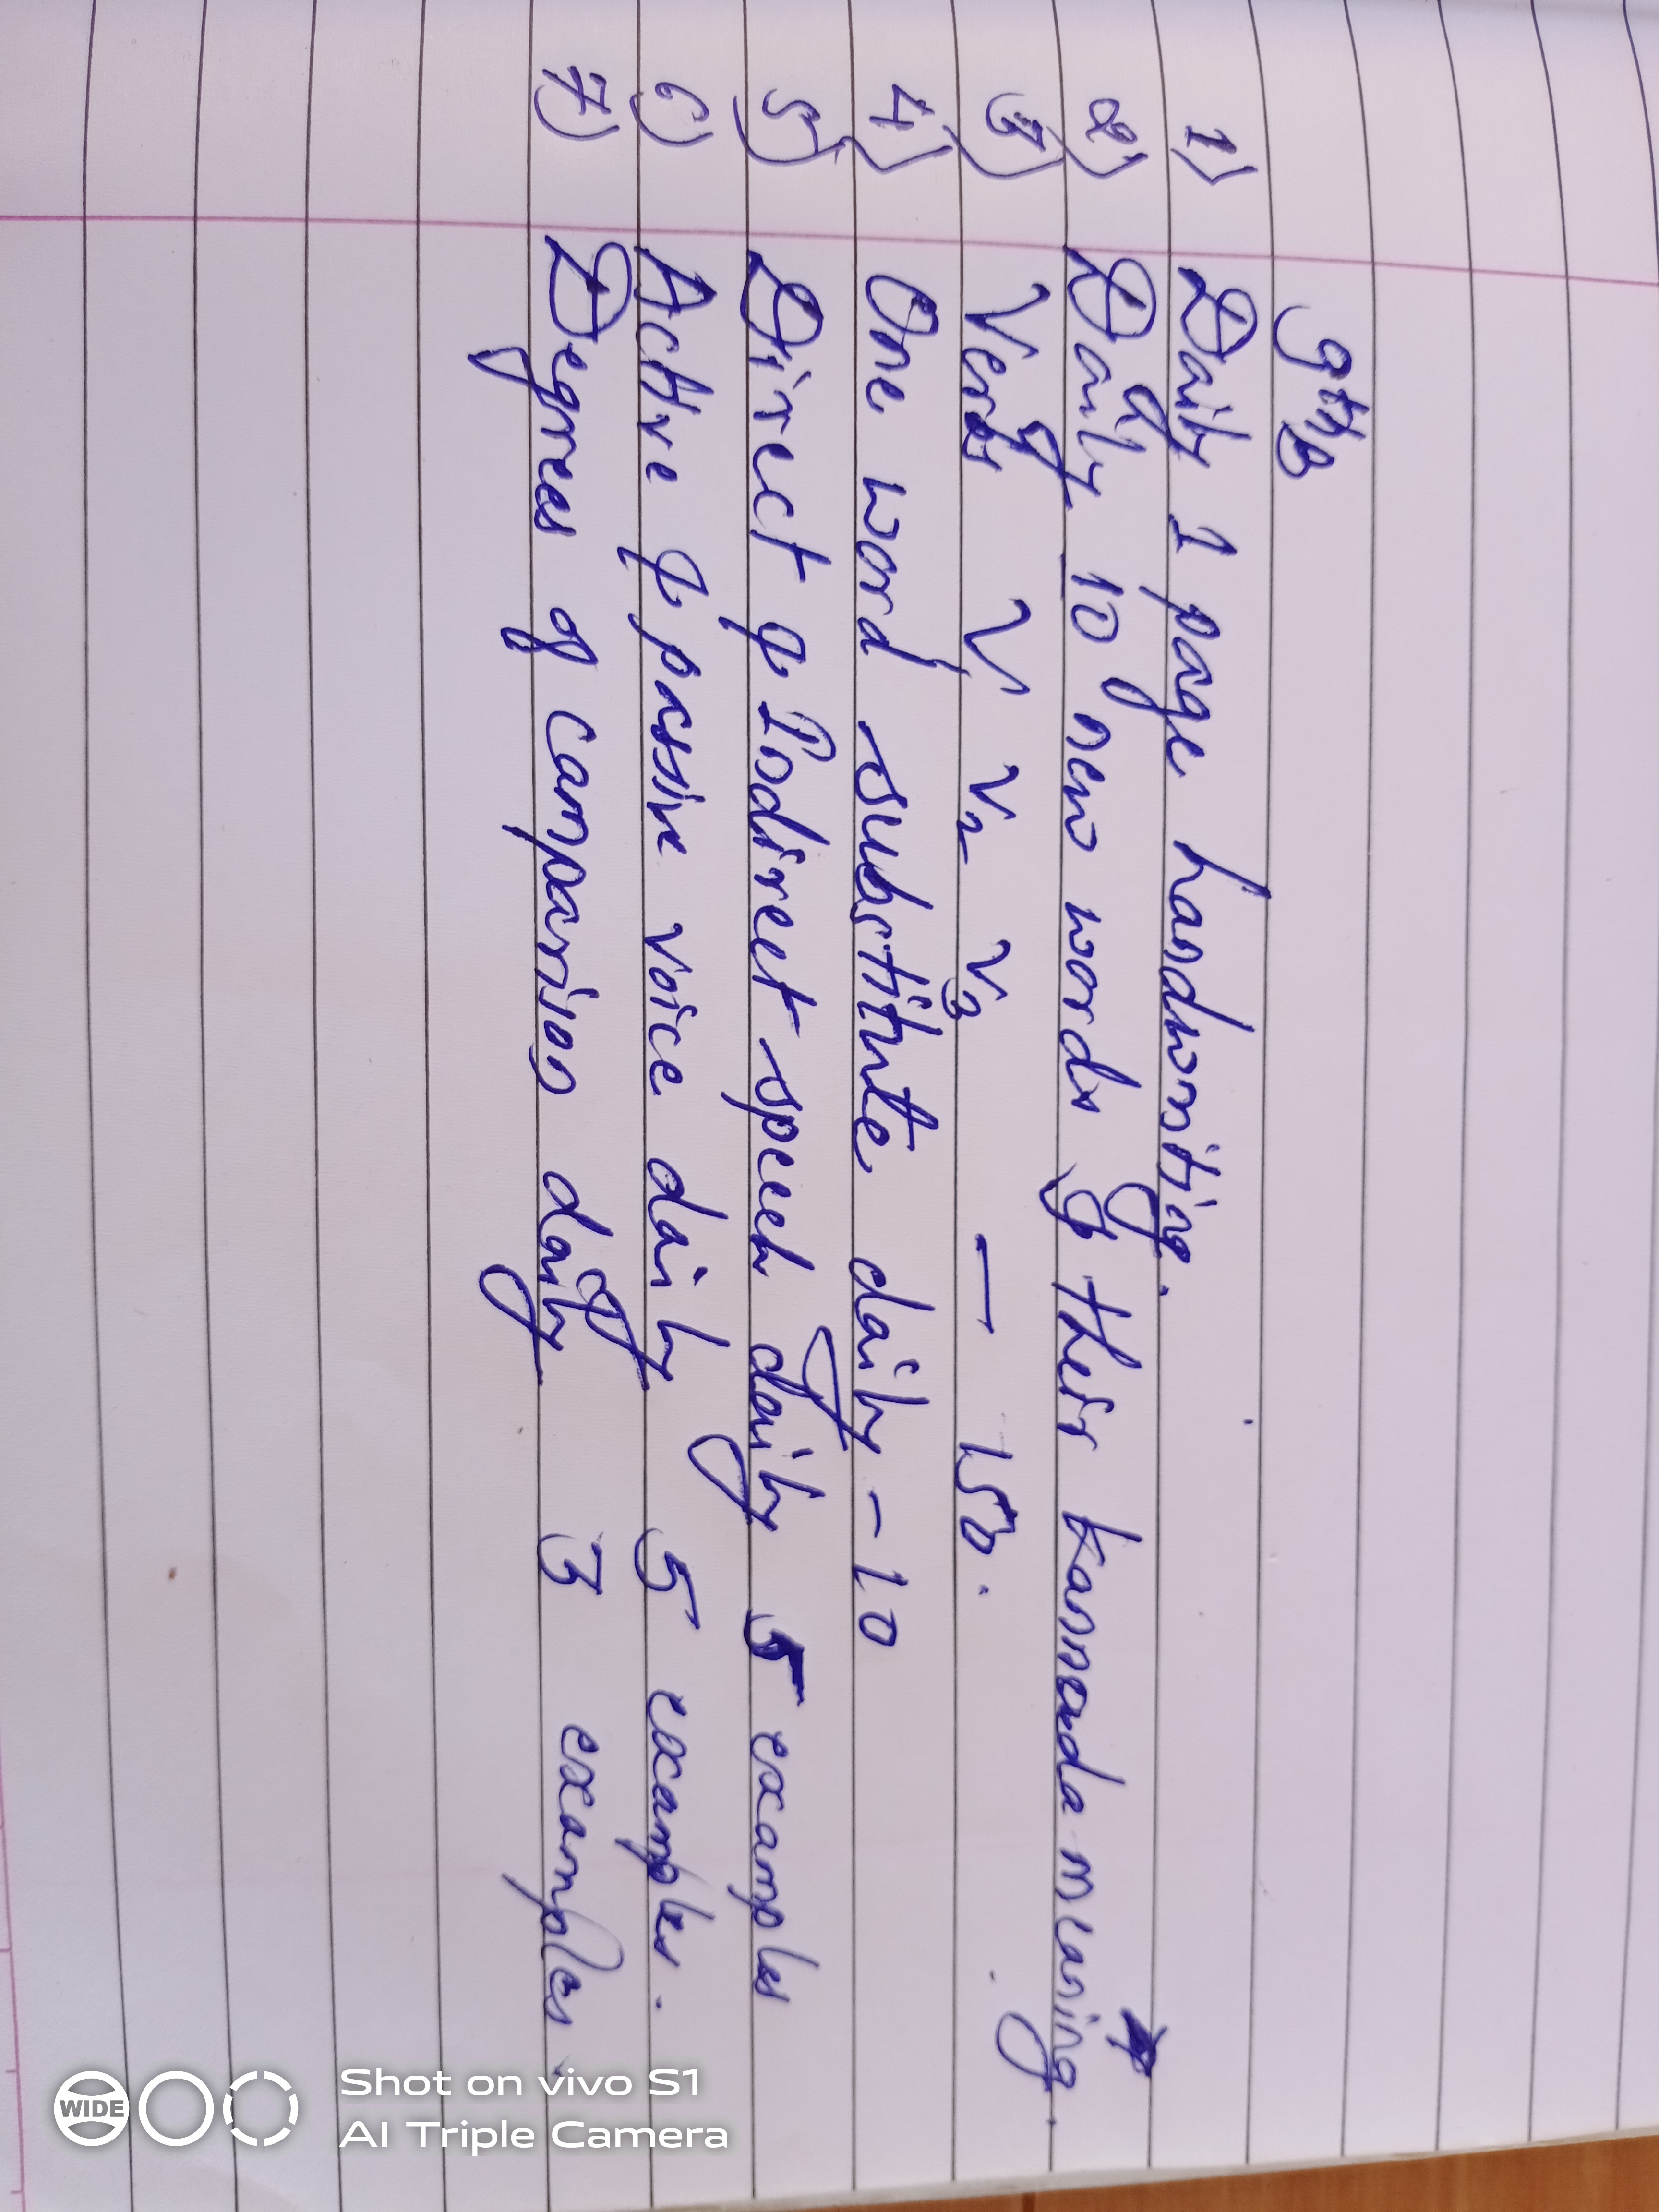 9th B
1) Daily 1 page handwriting.
2) Daily 10 new words & their kannada meaning.
3) Verbs V1 V2 V3 — 150.
4) One word substitute daily - 10
5) Direct & Indirect speech daily 5 examples
6) Active & passive voice daily 5 examples.
7) Degrees of comparison daily 3 examples.
WIDE
Shot on vivo S1
AI Triple Camera